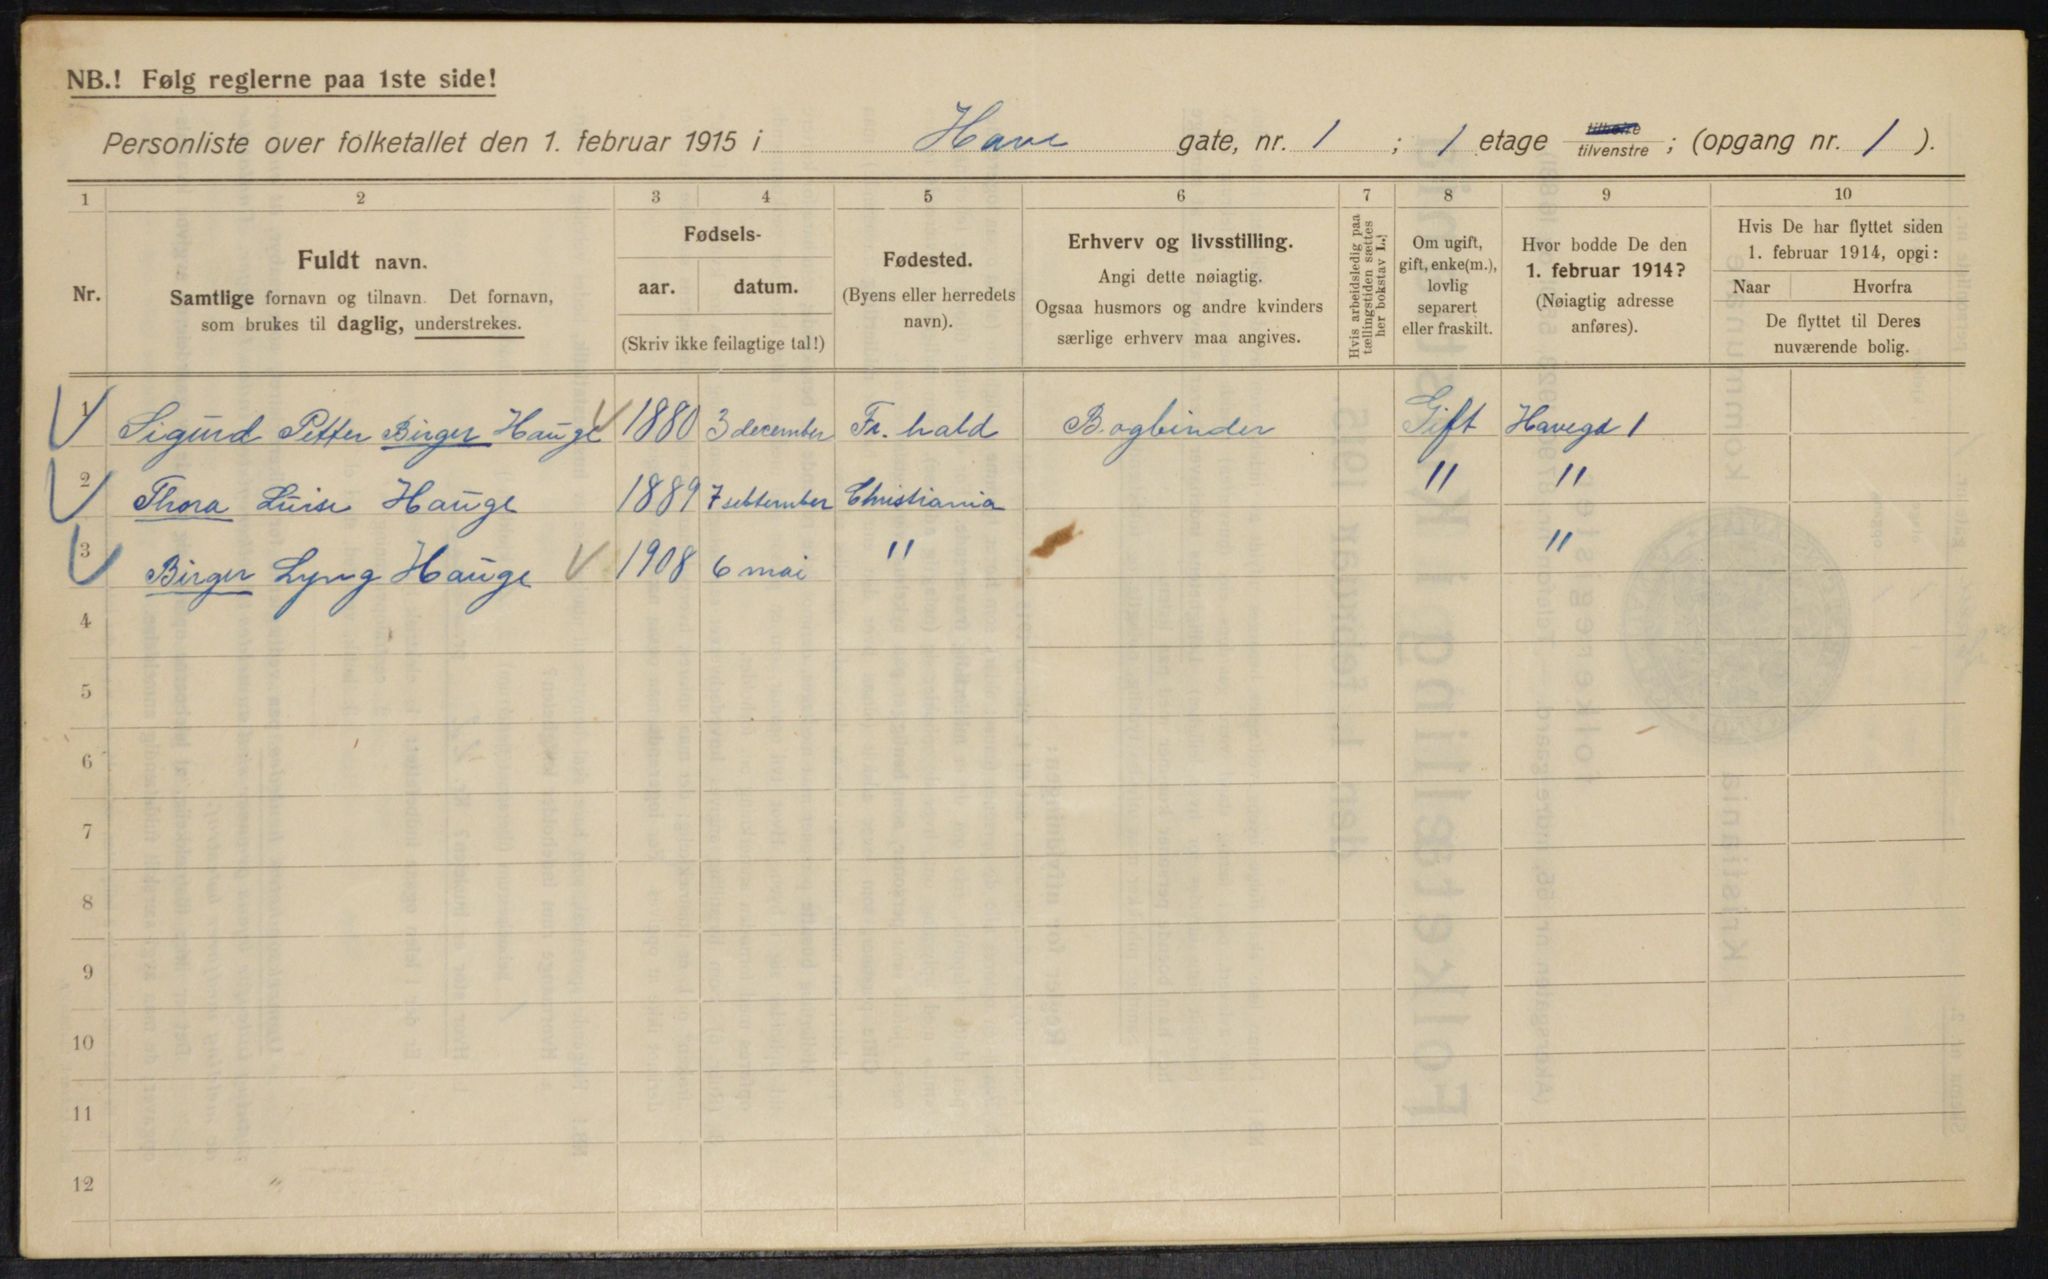 NB.! Følg reglerne paa 1ste side!
Personliste over folketallet den 1. februar 1915 i Have gate, nr. 1 ; 1 etage tilhøire tilvenstre ; (opgang nr. 1 ).
1 2 3 4 5 6 7 8 9 10
Nr.
Fuldt navn.
Samtlige fornavn og tilnavn. Det fornavn,
som brukes til daglig, understrekes.
Fødsels-
aar. datum.
(Skriv ikke feilagtige tal!)
Fødested.
(Byens eller herredets
navn).
Erhverv og livsstilling.
Angi dette nøiagtig.
Ogsaa husmors og andre kvinders
særlige erhverv maa angives.
Hvis arbeidsledig paa
tællingstiden sættes
her bokstav L.
Om ugift,
gift, enke(m.),
lovlig
separert
eller fraskilt.
Hvor bodde De den
1. februar 1914?
(Nøiagtig adresse
anføres).
Hvis De har flyttet siden
1. februar 1914, opgi:
Naar Hvorfra
De flyttet til Deres
nuværende bolig.
1 Sigurd Petter Birger Hauge 1880 3 december Fr. hald Bogbinder Gift Havegd 1
2 Thora Luise Hauge 1889 7 sebtember Christiania " "
3 Birger Lyng Hauge 1908 6 mai " "
4
5
6
7
8
9
10
11
12